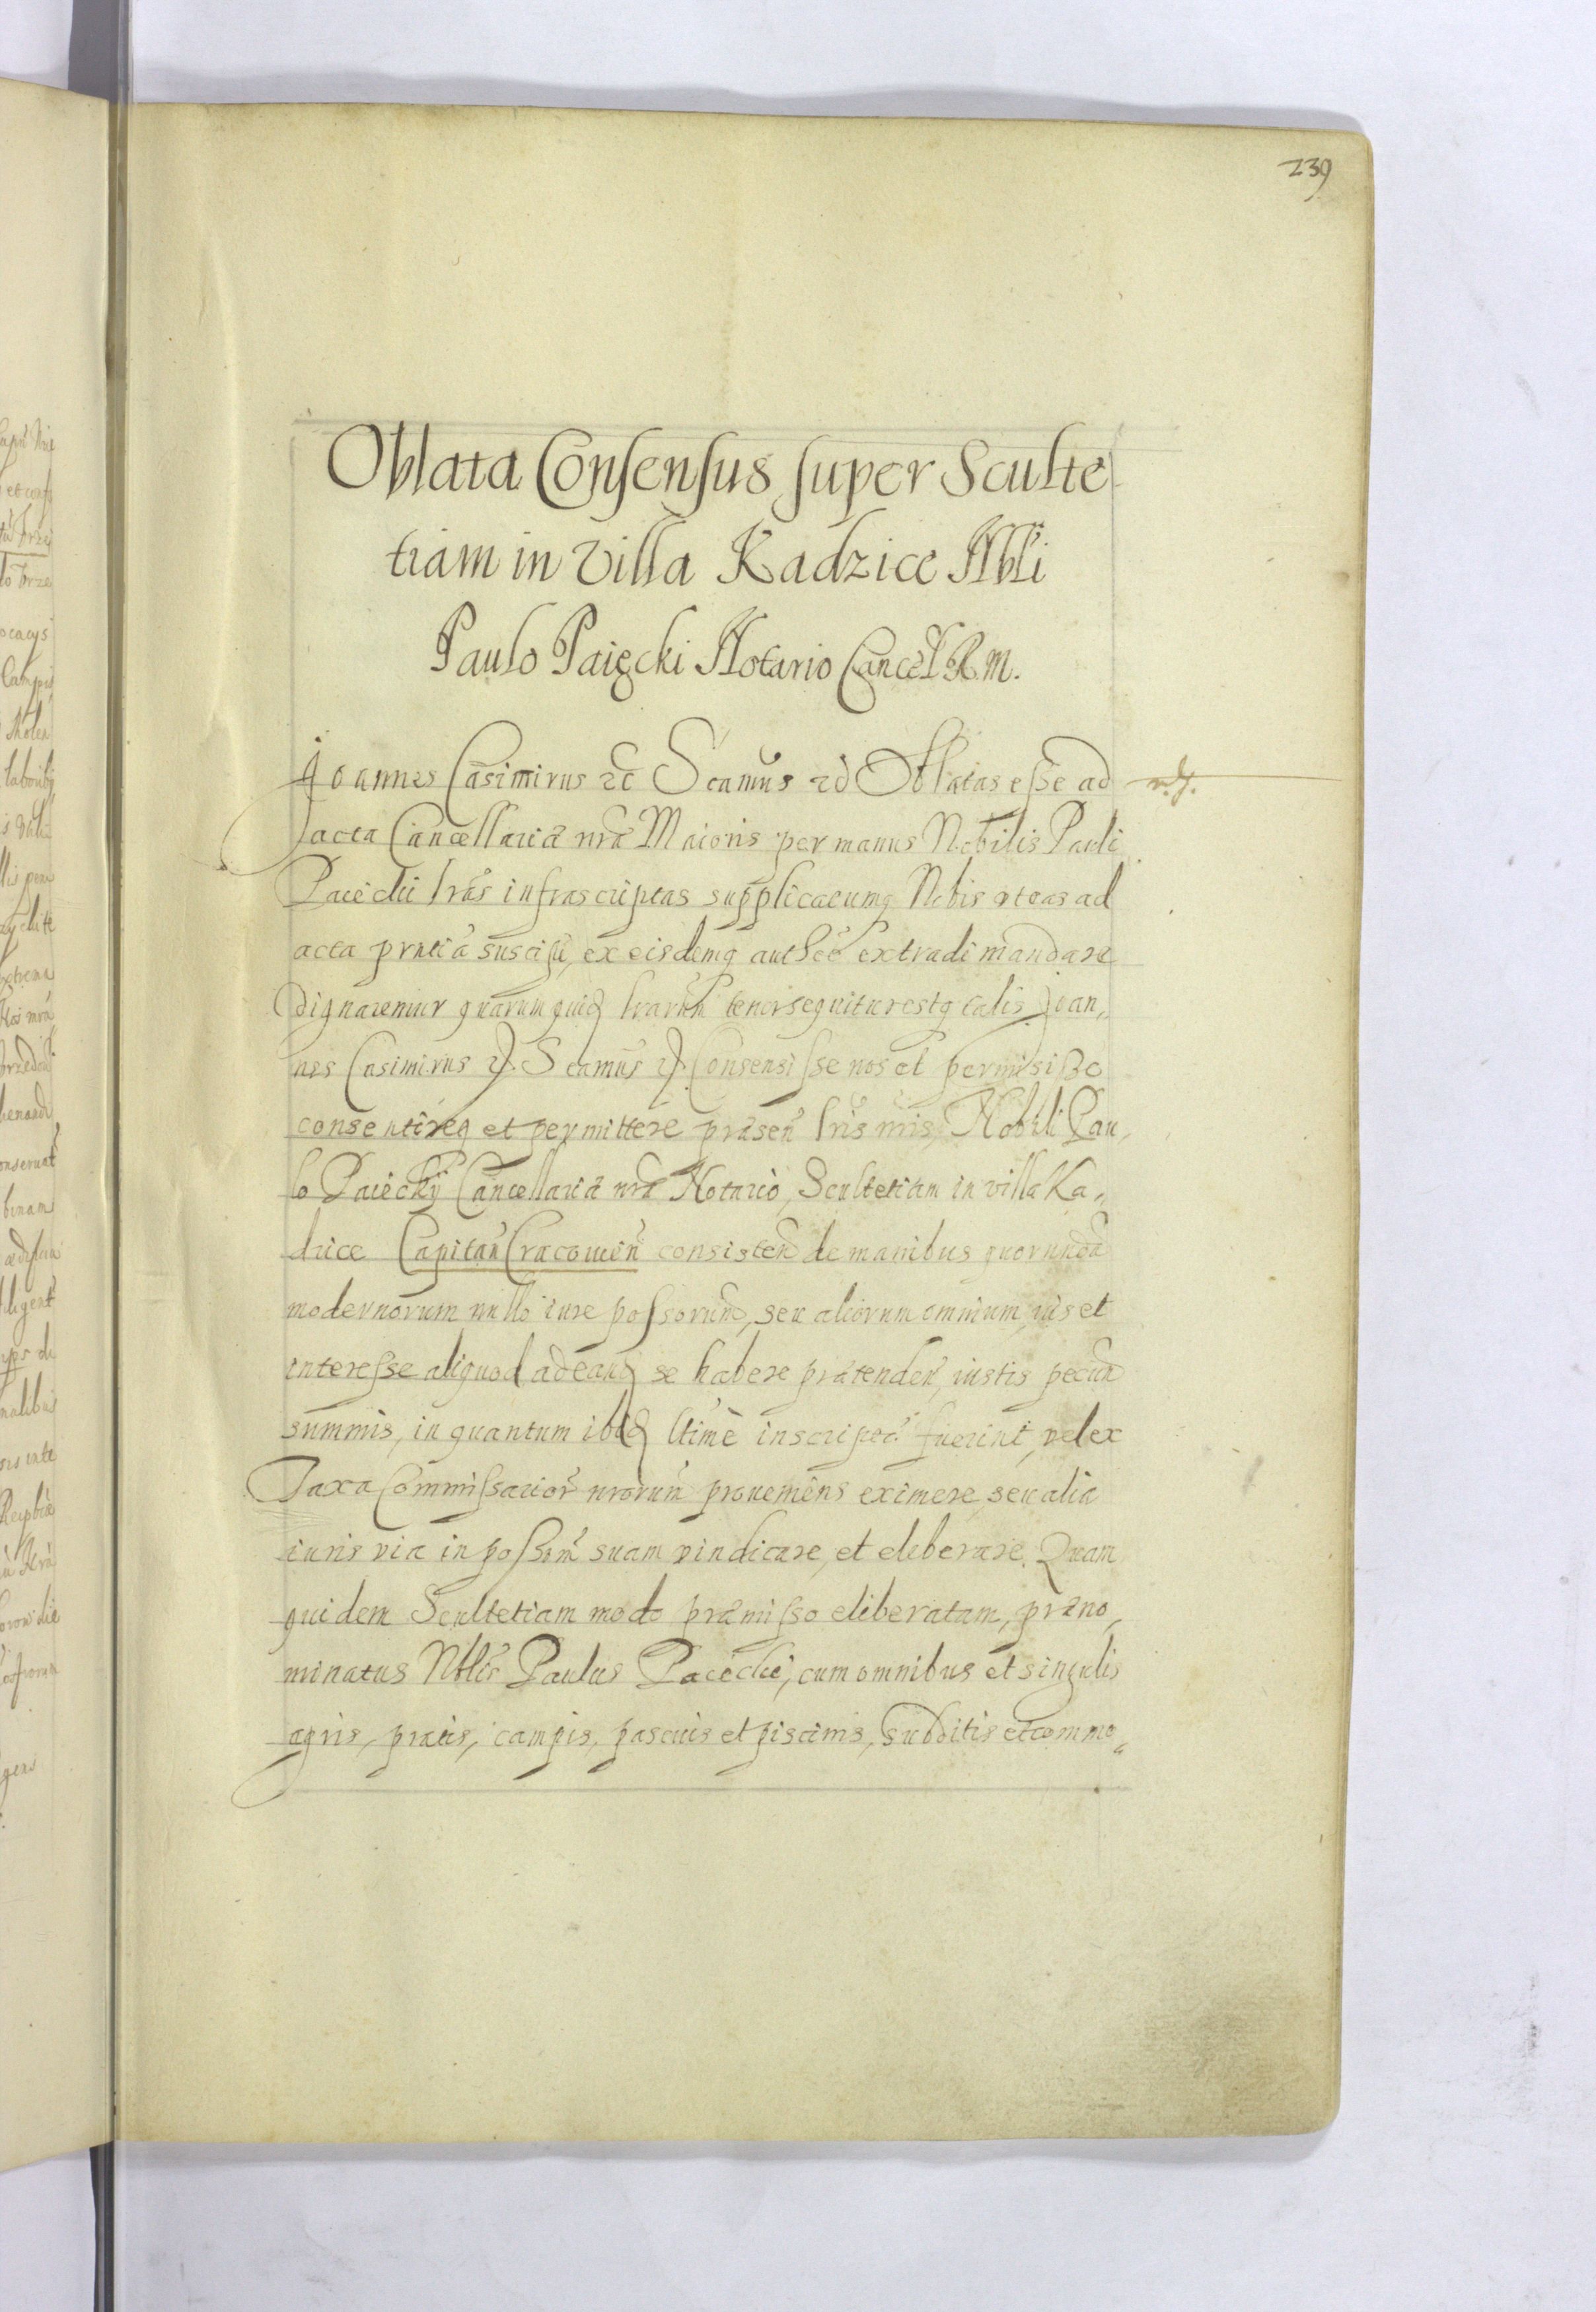 239
Oblata Consensus super Sculte
tiam in Villa Kadzice Nbli
Paulo Paięcki Notario Cancel R. M.
Joannes Casimirus etc Scamus etc Oblatas esse ad
acta Cancellariæ nræ Maioris per manus Nobilis Pauli
Paięcki lras infrascriptas supplicatumq Nobis ut eas ad
acta suscipi, ex eisdemq authce extradi mandare
dignaremur quarum quid lrarum tenor sequitur estq talis Joan,,
nes Casimirus etc. Scamus etc. Consensisse nos et permisisse
consentireq et permittere præsen lris nris, Nobili Pau,
lo Paięcky Cancellariæ nræ Notario, Scultetiam in villa Ka,,
dzice Capitan Cracouien consisten de manibus quorundā
modernorum nullo iure possorum, seu aliorum omnium, ius et
interesse aliquod ad eand se habere prætenden, iustis pecun
summis, in quantum ibid ltime inscriptæ fuerint, vel ex
Taxa Commissarior nrorum prouemens eximere, seu alia
iuris via in possem suam vindicare, et eliberare. Quam
quidem Scultetiam modo præmisso eliberatam, præno,
minatus Nblis Paulus Paięcki, cum omnibus et singulis
agris, pratis, campis, pascuis et piscinis, subditis et commo,,